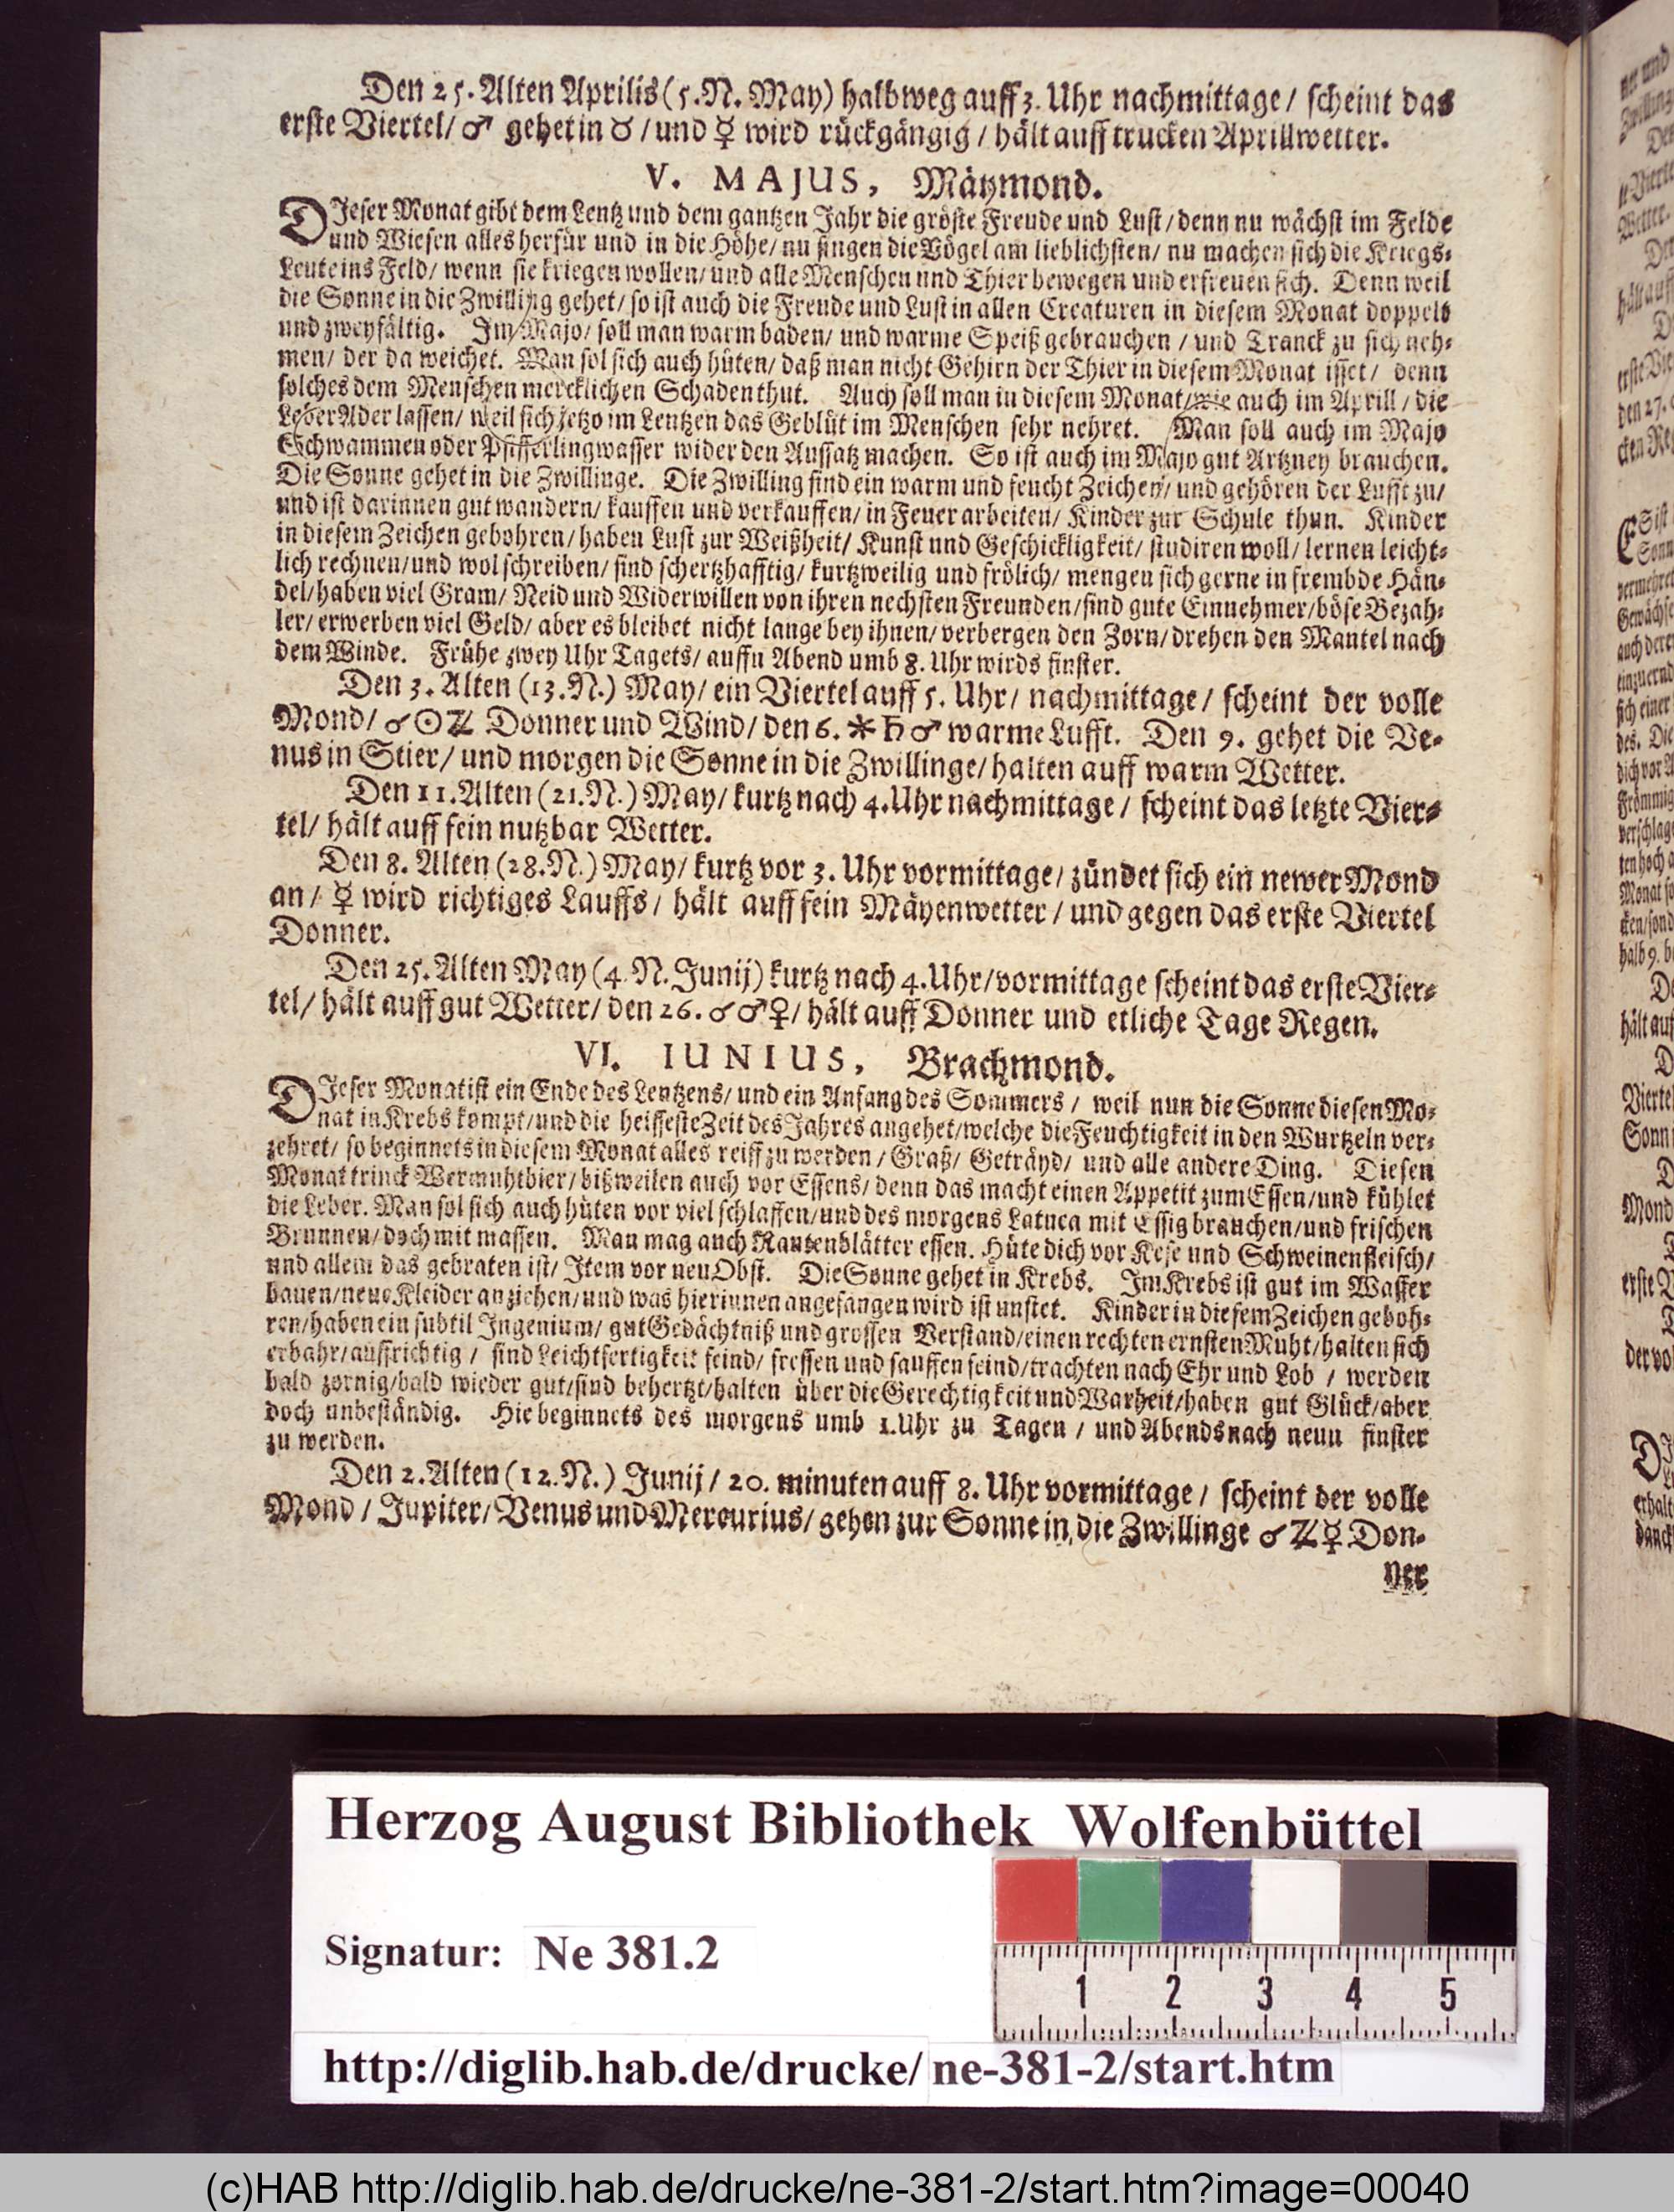 Den 25. Alten Aprilis (5. N. May) halbweg auff 3. Uhr nachmittage / scheint das
erste Viertel / ♂ gehet in ♉ / und ☿ wird rückgängig / hält auff trucken Aprillwetter.
V. MAJUS, Mäymond.
DIeser Monat gibt dem Lentz und dem gantzen Jahr die gröste Freude und Lust / denn nu wächst im Felde
und Wiesen alles herfür und in die Höhe / nu singen die Vögel am lieblichsten / nu machen sich die Kriegs-
Leute ins Feld / wenn sie kriegen wollen / und alle Menschen und Thier bewegen und erfreuen sich. Denn weil
die Sonne in die Zwilling gehet / so ist auch die Freude und Lust in allen Creaturen in diesem Monat doppelt
und zweyfältig. Im Majo / soll man warm baden / und warme Speiß gebrauchen / und Tranck zu sich neh-
men / der da weichet. Man sol sich auch hüten / daß man nicht Gehirn der Thier in diesem Monat isset / denn
solches dem Menschen mercklichen Schaden thut. Auch soll man in diesem Monat / wie auch im Aprill / die
Leber Ader lassen / weil sich jetzo im Lentzen das Geblüt im Menschen sehr nehret. Man soll auch im Majo
Schwammen oder Pfifferlingwasser wider den Aussatz machen. So ist auch im Majo gut Artzney brauchen.
Die Sonne gehet in die Zwillinge. Die Zwilling sind ein warm und feucht Zeichen / und gehören der Lufft zu /
und ist darinnen gut wandern / kauffen und verkauffen / in Feuer arbeiten / Kinder zur Schule thun. Kinder
in diesem Zeichen gebohren / haben Lust zur Weißheit / Kunst und Geschickligkeit / studiren woll / lernen leicht-
lich rechnen / und wol schreiben / sind schertzhafftig / kurtzweilig und frölich / mengen sich gerne in frembde Hän-
del / haben viel Gram / Neid und Widerwillen von ihren nechsten Freunden / sind gute Einnehmer / böse Bezah-
ler / erwerben viel Geld / aber es bleibet nicht lange bey ihnen / verbergen den Zorn / drehen den Mantel nach
dem Winde. Frühe zwey Uhr Tagets / auffn Abend umb 8. Uhr wirds finster.
Den 3. Alten (13. N.) May / ein Viertel auff 5. Uhr / nachmittage / scheint der volle
Mond / ☌ ☉ ♃ Donner und Wind / den 6. ⚹ ♄ ♂ warme Lufft. Den 9. gehet die Ve-
nus in Stier / und morgen die Sonne in die Zwillinge / halten auff warm Wetter.
Den 11. Alten (21. N.) May / kurtz nach 4. Uhr nachmittage / scheint das letzte Vier-
tel / hält auff fein nutzbar Wetter.
Den 8. Alten (28. N.) May / kurtz vor 3. Uhr vormittage / zündet sich ein newer Mond
an / ☿ wird richtiges Lauffs / hält auff fein Mäyenwetter / und gegen das erste Viertel
Donner.
Den 25. Alten May (4. N. Junij) kurtz nach 4. Uhr / vormittage scheint das erste Vier-
tel / hält auff gut Wetter / den 26. ☌ ♂ ♀ / hält auff Donner und etliche Tage Regen.
VI. IUNIUS, Brachmond.
DIeser Monat ist ein Ende des Lentzens / und ein Anfang des Sommers / weil nun die Sonne diesen Mo-
nat in Krebs kompt / und die heisseste Zeit des Jahres angehet / welche die Feuchtigkeit in den Wurtzeln ver-
zehret / so beginnets in diesem Monat alles reiff zu werden / Graß / Geträyd / und alle andere Ding. Diesen
Monat trinck Wermuhtbier / bißweilen auch vor Essens / denn das macht einen Appetit zum Essen / und kühlet
die Leber. Man sol sich auch hüten vor viel schlaffen / und des morgens Latuca mit Essig brauchen / und frischen
Brunnen / doch mit massen. Man mag auch Rautenblätter essen. Hüte dich vor Kese und Schweinenfleisch /
und allem das gebraten ist / Item vor neu Obst. Die Sonne gehet in Krebs. Im Krebs ist gut im Wasser
bauen / neue Kleider anziehen / und was hierinnen angefangen wird ist unstet. Kinder in diesem Zeichen geboh-
ren / haben ein subtil Ingenium / gut Gedächtniß und grossen Verstand / einen rechten ernsten Muht / halten sich
erbahr / auffrichtig / sind Leichtfertigkeit feind / fressen und sauffen feind / trachten nach Ehr und Lob / werden
bald zornig / bald wieder gut / sind behertzt / halten über die Gerechtigkeit und Warheit / haben gut Glück / aber
doch unbeständig. Hie beginnets des morgens umb 1. Uhr zu Tagen / und Abends nach neun finster
zu werden.
Den 2. Alten (12. N.) Junij / 20. minuten auff 8. Uhr vormittage / scheint der volle
Mond / Jupiter / Venus und Mercurius / gehen zur Sonne in die Zwillinge ☌ ♃ ☿ Don-
ner
Herzog August Bibliothek Wolfenbüttel
Signatur: Ne 381.2
1 2 3 4 5
http://diglib.hab.de/drucke/ne-381-2/start.htm
(c)HAB http://diglib.hab.de/drucke/ne-381-2/start.htm?image=00040